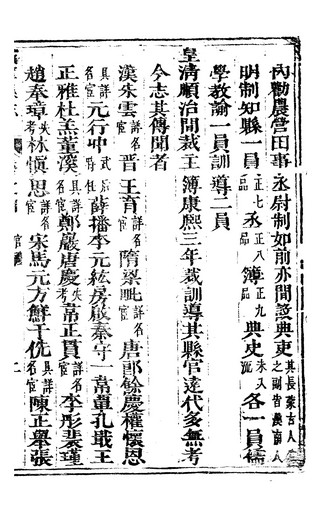 內勸農營田事丞尉制如前亦間設典吏其長蒙古人
明制知縣一員正七品丞正八品簿正九品典史未入流各一員儒
學教諭一員訓導二員
皇清順治間裁主簿康熙三年裁訓導其縣官達代多無考
今志其傳聞者
漢朱雲具詳名宦晉王育具詳名宦隋梁毗具詳名宦唐郎餘慶權懷恩
具詳名宦元行冲武后時任薛播李元紘房啟秦守一韋單孔戢王
正雅杜羔董溪具詳名宦鄭嚴唐慶失考韋正貫具詳名宦李彤裴瑾
趙奉璋失考林愼思具詳名宦宋馬元方鮮于侁具詳名宦陳正舉張